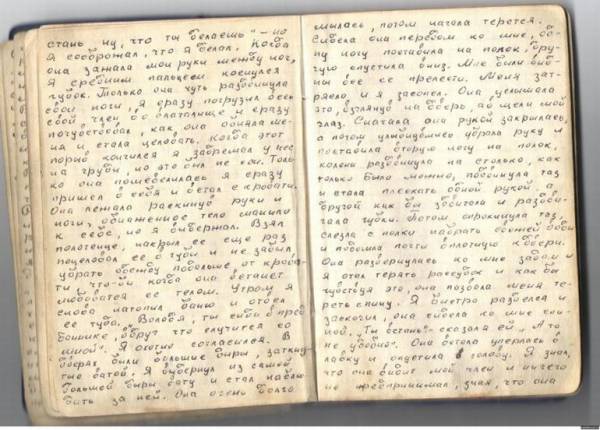 стань ну, что ты делаешь" – но
я соображал, что я делал. Когда
она зажала мои руки между ног,
я средним пальцем коснулся
губок. Только она чуть раздвинула
свои ноги, я сразу погрузил весь
свой член во влагалище и сразу
почувствовал, как она обняла ме-
ня и стала целовать. Когда этот
порыв кончился я задремал у нее
на груди, но это был не сон. Толь
ко она пошевелилась я сразу
пришел в себя и встал с кровати.
Она лежала раскинув руки и
ноги, обнаженное тело манило
к себе, но я выдержал. Взял
полотенце, накрыл ее еще раз
поцеловал ее в губы и не забыл
убрать одежду подальше от крова-
ти, что-бы когда она встанет
любоваться ее телом. Утром я
снова натопил баню и отвел
ее туда. Володя, ты сиди в пред
баннике, вдруг что случится со
мной". Я охотно согласился. В
дверях были большие дыры, заткну-
тые ватой. Я выдернул из самой
большой дыры вату и стал наблю
дать за ней. Она очень долго
мылась, потом начала тереться.
Сидела она передом ко мне, од-
ну ногу поставила на полок, дру-
гую опустила вниз. Мне были вид-
ны все ее прелести. Меня зат-
рясло и я засопел. Она услышала
это, взглянув на дверь, а в щели мой
глаз. Сначала она рукой закрылась,
а потом улыбнувшись убрала руку и
поставила вторую ногу на полок,
колени раздвинула на столько, как
только было можно, подвинула таз
и стала плескать одной рукой, а
другой как бы сводила и раздви-
гала губки. Потом опрокинула таз,
слезла с полки набрать второй воды
и подошла почти вплотную к двери.
Она развернулась ко мне задом и
я стал терять рассудок и как бы
чувствуя это, она позвала меня те-
реть спину. Я быстро разделся и
заскочил, она сидела ко мне спи-
ной. „Ты встань" – сказал я ей, – „А то
не удобно". Она встала уперлась в
лавку и опустила голову. Я знал,
что она видит мой член и ничего
не предпринимал, зная, что она